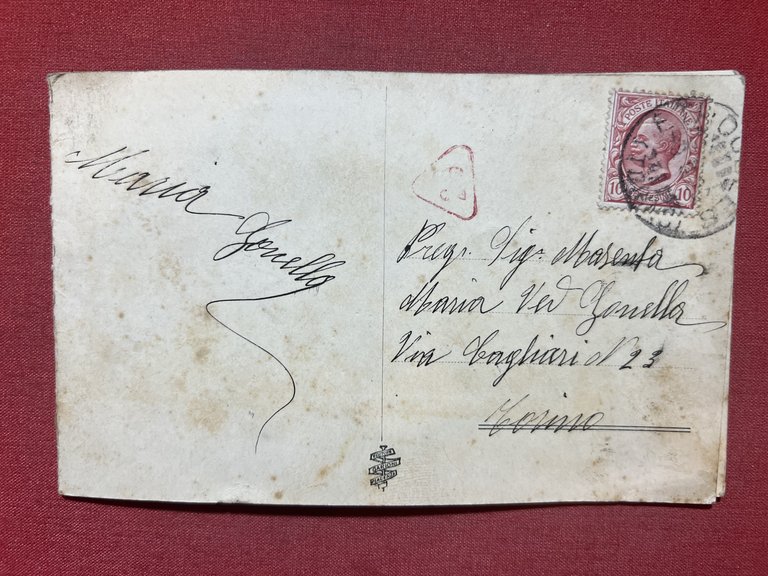 Maria
Gonella
POSTE ITALIANE
10 10
Preg. Sig. Masenta
Maria Ved Gonella
Via Cagliari N 23
Torino